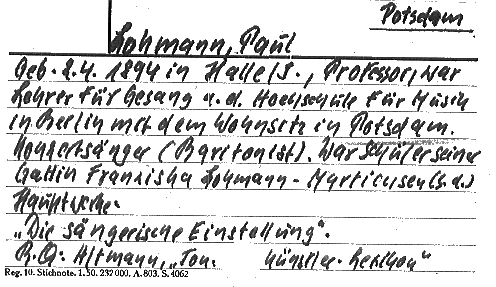 Potsdam
Lohmann, Paul
Geb. 2.4. 1894 in Halle/S., Professor, war
Lehrer für Gesang a. d. Hochschule für Musik
in Berlin mit dem Wohnsitz in Potsdam.
Konzertsänger (Baritonist). War Schüler seiner
Gattin Franziska Lohmann - Martienssen (s.d.)
Hauptwerke:
„Die sängerische Einstellung".
R.Q: Altmann, „Ton- künstler-Lexikon"
Reg. 10. Stichnote. 1. 50. 232 000. A. 803. S. 4062